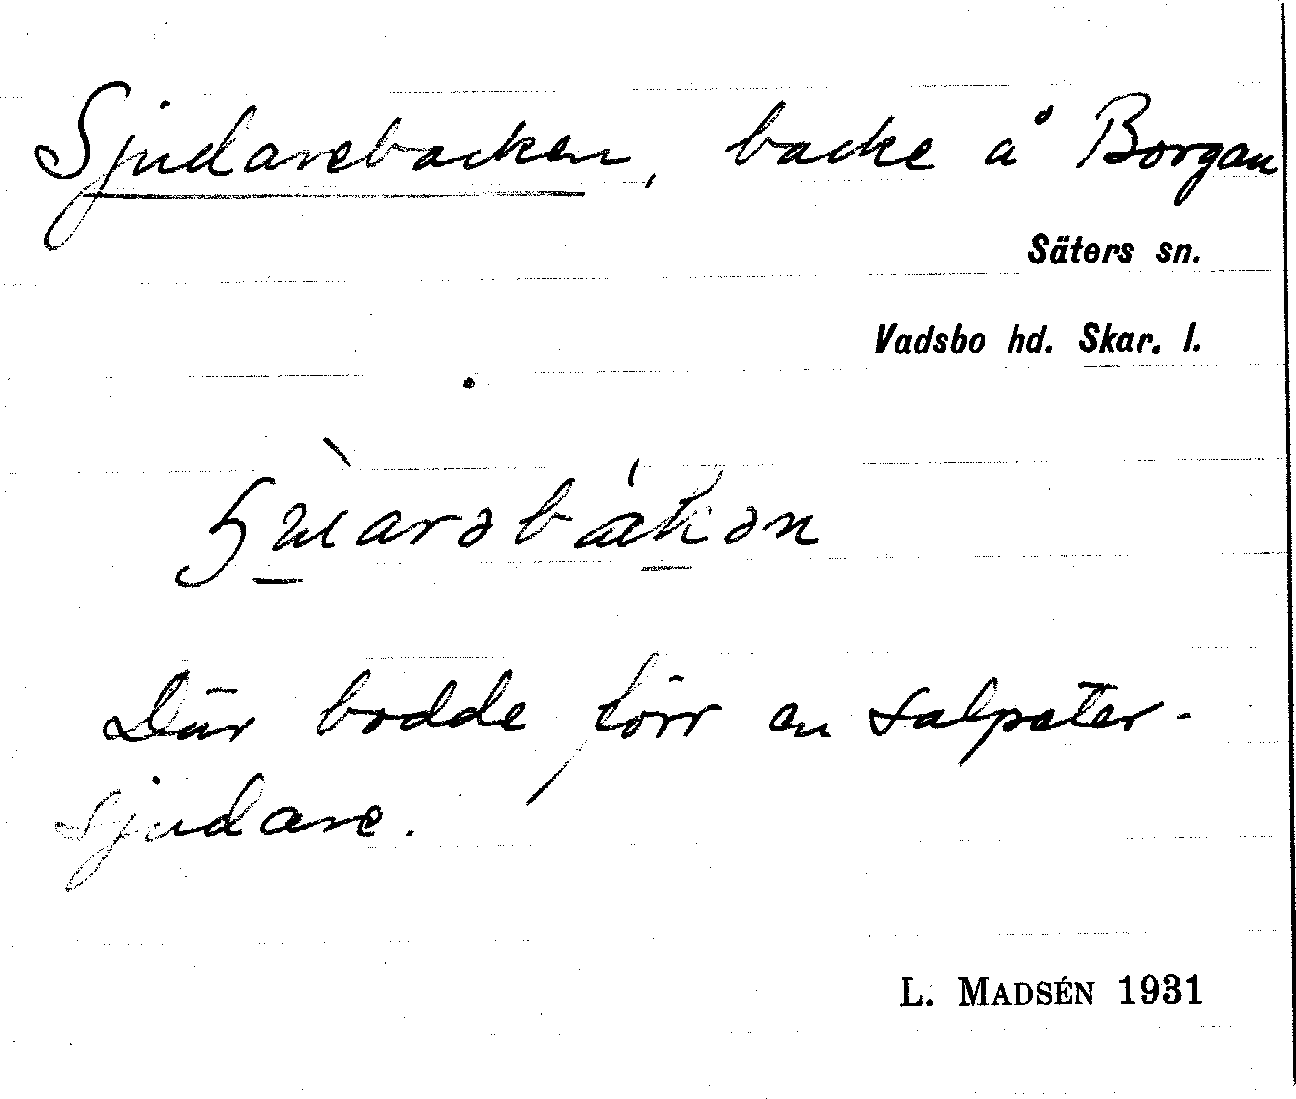 Sjudarebacken, backe å Borgan
Säters sn.
Vadsbo hd. Skar. l.
Där bodde förr en salpeter-
sjudare.
L. MADSÉN 1931